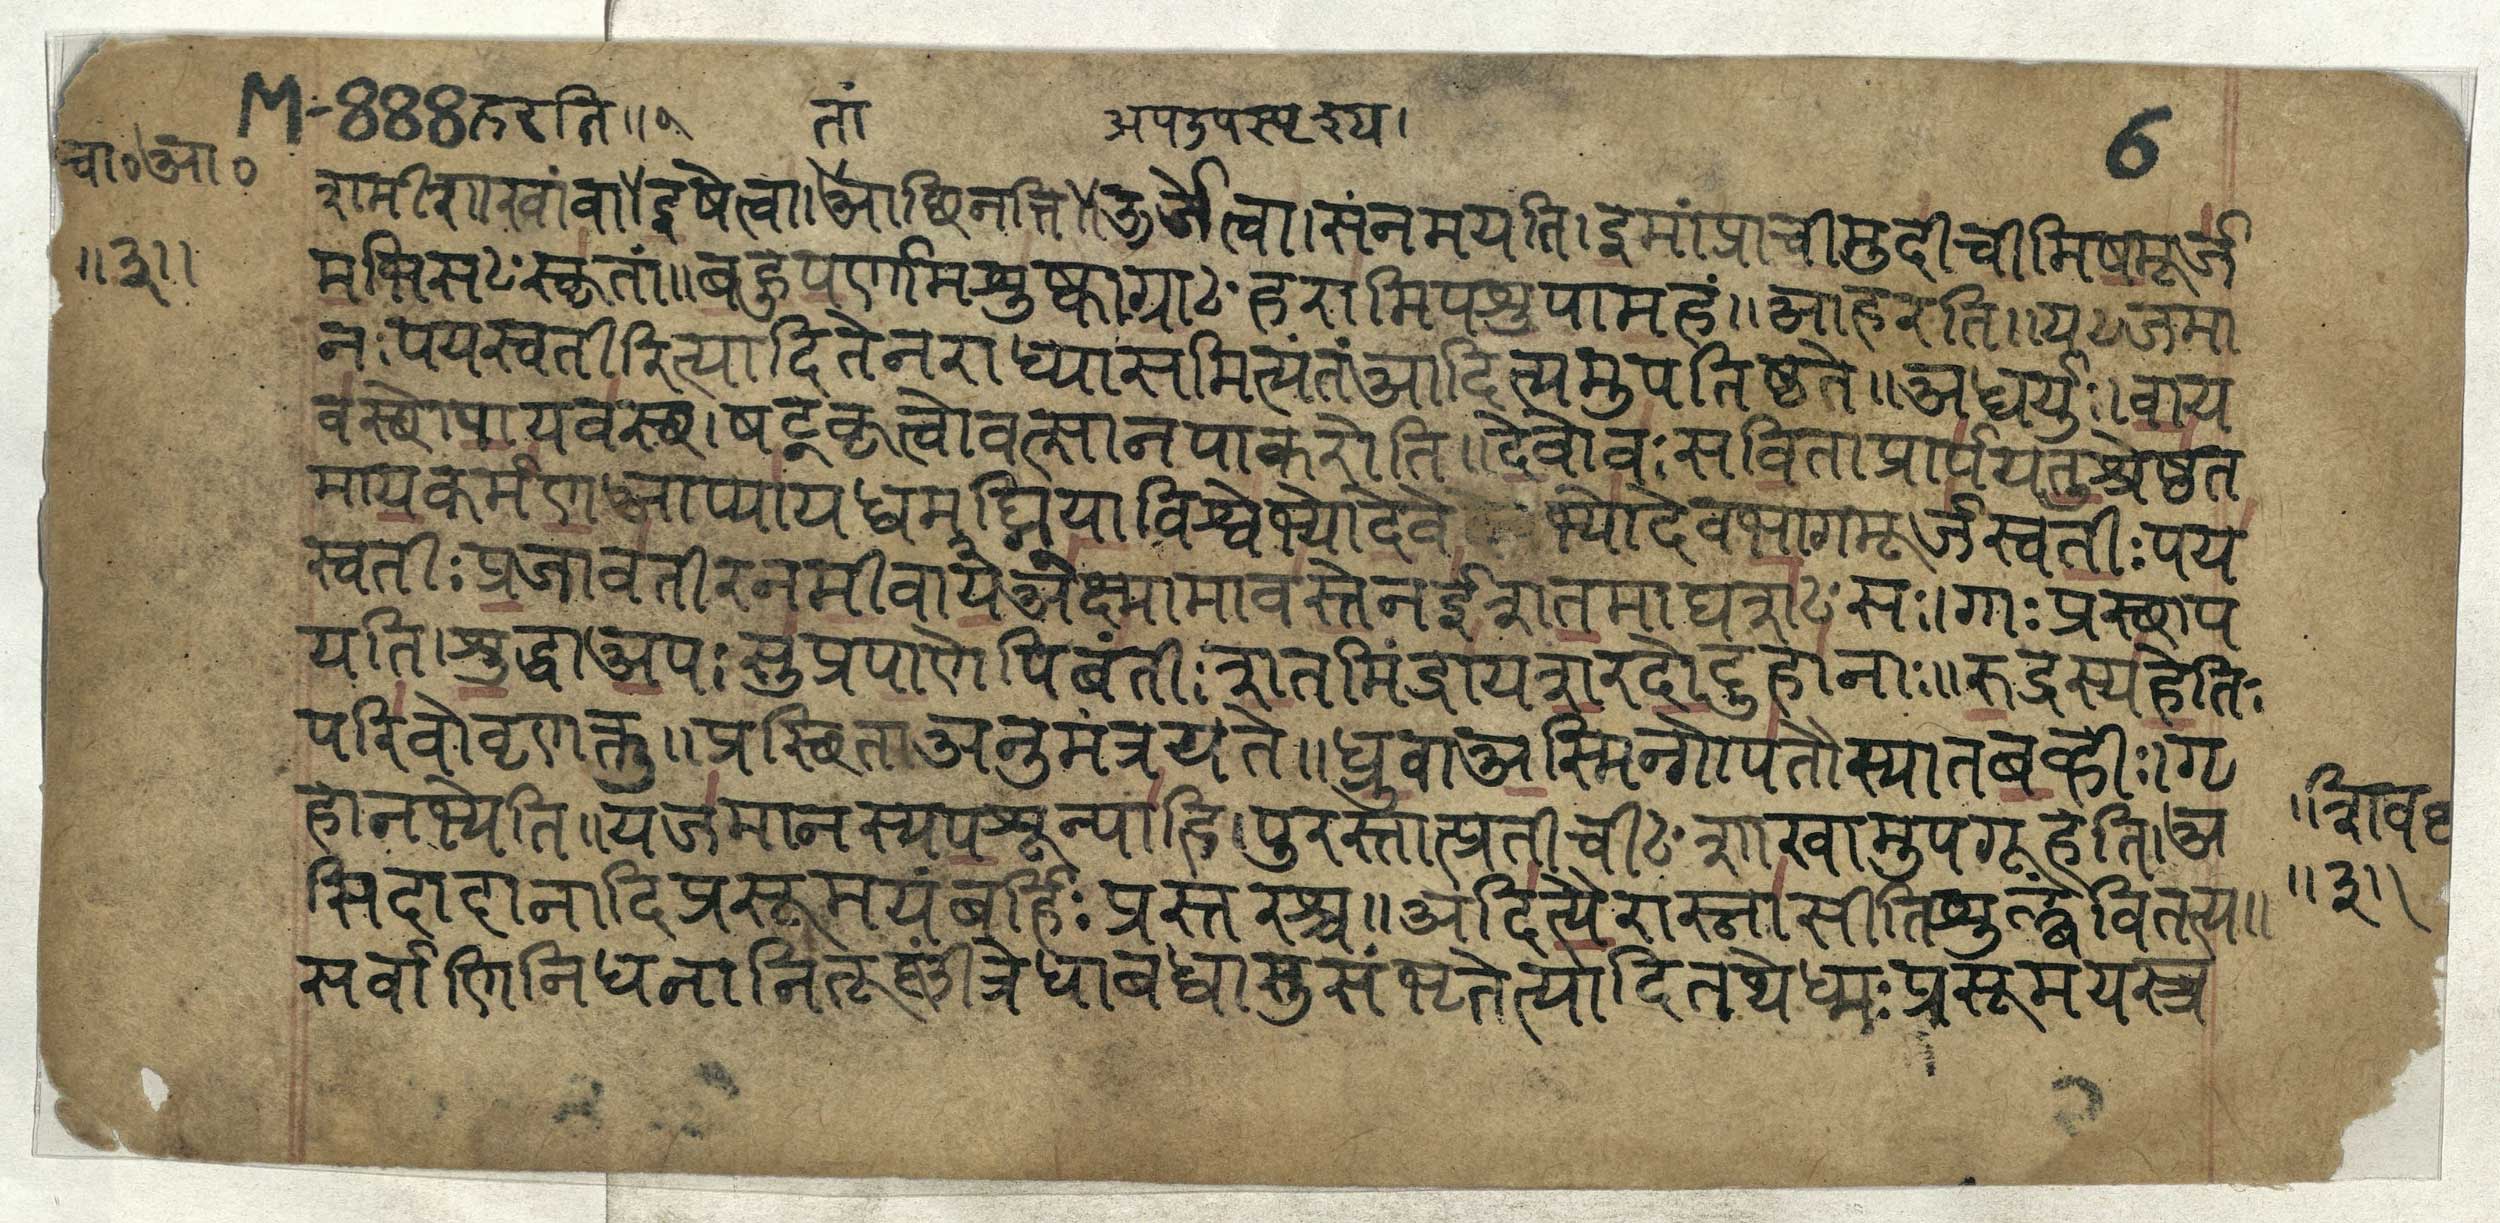 M-888 हरति॥१ तां अपउपस्पृश्य। 6
चा॰आ॰
शमीशाखांवा।इषेत्वा।आछिनत्ति।ऊर्जेत्वा।संनमयति।इमांप्राचीमुदीचीमिषमूर्ज
॥३॥
मभिसꣳस्कृतां॥बहुपर्णामशुष्काग्राꣳहरामिपशुपामहं॥आहरति॥यजमा
नःपयस्वतीरित्यादितेनराध्यासमित्यंतंआदित्यमुपतिष्ठते॥अध्वर्युः।वाय
वस्थोपायवस्थ।षट्कृत्वोवत्सानपाकरोति॥देवोवःसविताप्रार्पयतुश्रेष्ठत
मायकर्मणआप्यायध्वमघ्नियाविश्वेभ्योदेवे भ्योदेवभागमूर्जस्वतीःपय
स्वतीःप्रजावतीरनमीवायेअक्ष्मामावस्तेनईशतमाघशꣳसः।गाःप्रस्थाप
यति।शुद्धाअपःसुप्रपाणेपिबंतीःशतमिंद्रायशरदोदुहानाः॥रुद्रस्यहेतिः
परिवोवृणक्तु॥प्रस्थिताअनुमंत्रयते॥ध्रुवाअस्मिन्गोपतौस्यातबव्हीः।गृ
हानभ्येति॥यजमानस्यपशून्पाहि।पुरस्तात्प्रतीचीꣳशाखामुपगूहति।अ
॥शिव
सिदादानादिप्रसूमयंबर्हिःप्रस्तरश्च॥अदित्यैरास्नासीतिशुल्बंवितत्य॥
॥३॥
सर्वाणिनिधनानितूष्णींत्रेधाबध्वासुसंभृतेत्यादितथेध्मःप्रसूमयस्त्र